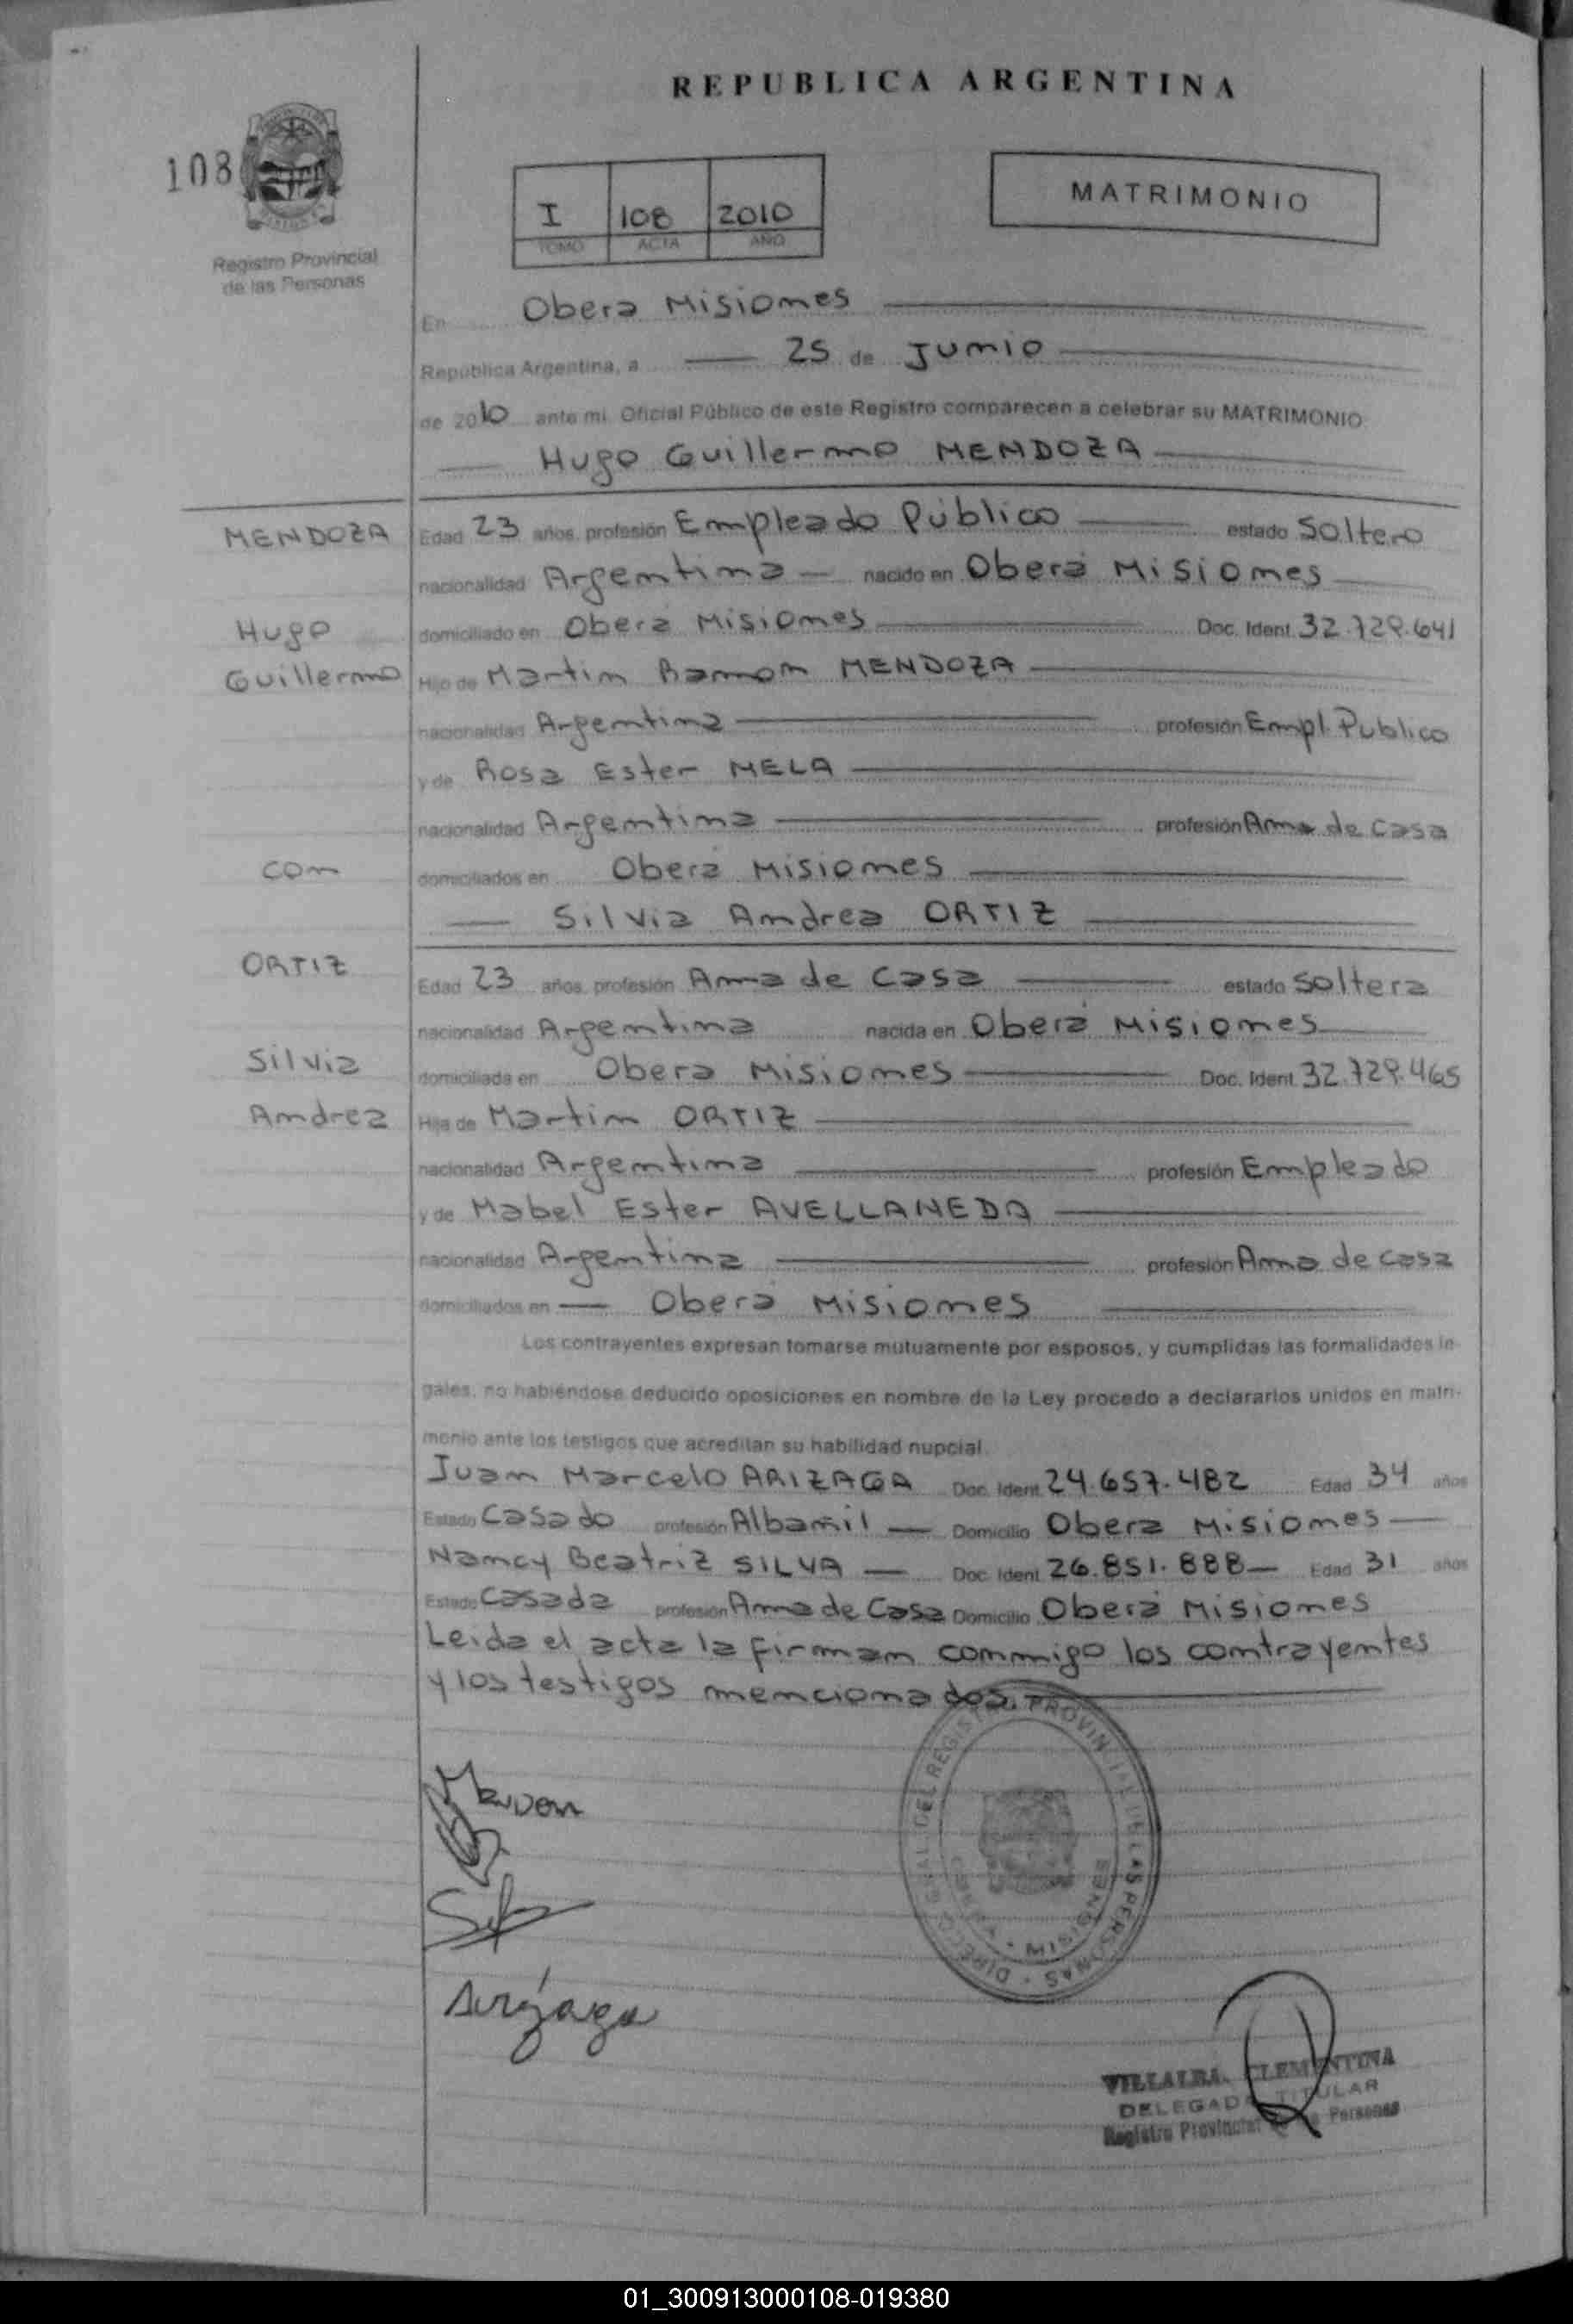 REPUBLICA ARGENTINA
108
I 108 2010
TOMO ACTA AÑO
MATRIMONIO
Registro Provincial
de las Personas
En Obera Misiones
República Argentina, a 25 de Junio
de 2010 ante mi, Oficial Público de este Registro comparecen a celebrar su MATRIMONIO
Hugo Guillermo MENDOZA
MENDOZA
Edad 23 años, profesión Empleado Público estado Soltero
nacionalidad Argentina nacido en Oberá Misiones
Hugo
domiciliado en Oberá Misiones Doc. Ident. 32.729.641
Guillermo
Hijo de Martin Ramon MENDOZA
nacionalidad Argentina profesión Empl. Publico
y de Rosa Ester MELA
nacionalidad Argentina profesión Ama de Casa
con
domiciliados en Oberá Misiones
Silvia Andrea ORTIZ
ORTIZ
Edad 23 años, profesión Ama de Casa estado Soltera
nacionalidad Argentina nacida en Oberá Misiones
Silvia
domiciliada en Obera Misiones Doc. Ident. 32.729.465
Andrea
Hija de Martin ORTIZ
nacionalidad Argentina profesión Empleado
y de Mabel Ester AVELLANEDA
nacionalidad Argentina profesión Ama de Casa
domiciliados en Oberá Misiones
Los contrayentes expresan tomarse mutuamente por esposos, y cumplidas las formalidades le-
gales, no habiéndose deducido oposiciones en nombre de la Ley procedo a declararlos unidos en matri-
monio ante los testigos que acreditan su habilidad nupcial.
Juan Marcelo ARIZAGA Doc. Ident. 24.657.482 Edad 34 años
Estado Casado profesión Albañil Domicilio Obera Misiones
Nancy Beatriz SILVA Doc. Ident. 26.851.888 Edad 31 años
Estado Casada profesión Ama de Casa Domicilio Oberá Misiones
Leida el acta la firman conmigo los contrayentes
y los testigos mencionados.
DIRECCION GRAL. DEL REGISTRO PROVINCIAL DE LAS PERSONAS
MISIONES
Arizaga
VILLALBA, CLEMENTINA
DELEGADA TITULAR
Registro Provincial de las Personas
01_300913000108-019380